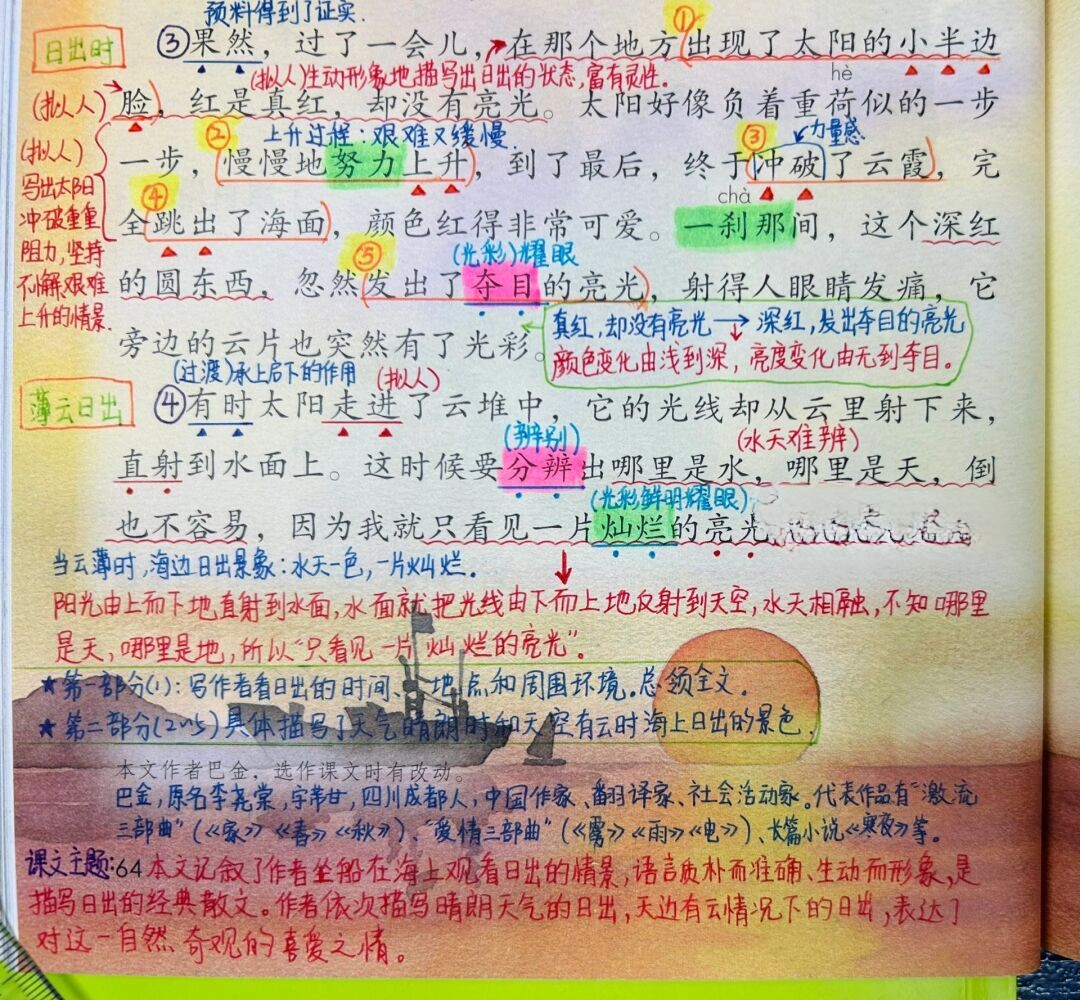 预料得到了证实.
①
日出时
③果然，过了一会儿，在那个地方出现了太阳的小半边
(拟人)生动形象地描写出日出的状态,富有灵性.
hè
(拟人)
脸，红是真红，却没有亮光。太阳好像负着重荷似的一步
② 上升过程：艰难又缓慢. ③ 力量感
(拟人)
写出太阳
冲破重重
阻力,坚持
不懈艰难
上升的情景.
一步，慢慢地努力上升，到了最后，终于冲破了云霞，完
④
chà
全跳出了海面，颜色红得非常可爱。一刹那间，这个深红
⑤ (光彩)耀眼
的圆东西，忽然发出了夺目的亮光，射得人眼睛发痛，它
旁边的云片也突然有了光彩。
真红,却没有亮光→深红,发出夺目的亮光
颜色变化由浅到深，亮度变化由无到夺目。
(过渡)承上启下的作用 (拟人)
薄云日出
④有时太阳走进了云堆中，它的光线却从云里射下来，
(辨别) (水天难辨)
直射到水面上。这时候要分辨出哪里是水，哪里是天，倒
(光彩鲜明耀眼)
也不容易，因为我就只看见一片灿烂的亮光
当云薄时,海边日出景象：水天一色,一片灿烂.
阳光由上而下地直射到水面,水面就把光线由下而上地反射到天空,水天相融,不知哪里
是天,哪里是地,所以"只看见一片灿烂的亮光".
★第一部分(1)：写作者看日出的时间、地点和周围环境.总领全文.
★第二部分(2~5)具体描写了天气晴朗时和天空有云时海上日出的景色.
本文作者巴金，选作课文时有改动。
巴金,原名李尧棠,字芾甘,四川成都人,中国作家、翻译家、社会活动家。代表作品有"激流
三部曲"(《家》《春》《秋》)、"爱情三部曲"(《雾》《雨》《电》)、长篇小说《寒夜》等。
课文主题:64本文记叙了作者坐船在海上观看日出的情景,语言质朴而准确、生动而形象,是
描写日出的经典散文。作者依次描写晴朗天气的日出,天边有云情况下的日出,表达了
对这一自然奇观的喜爱之情。